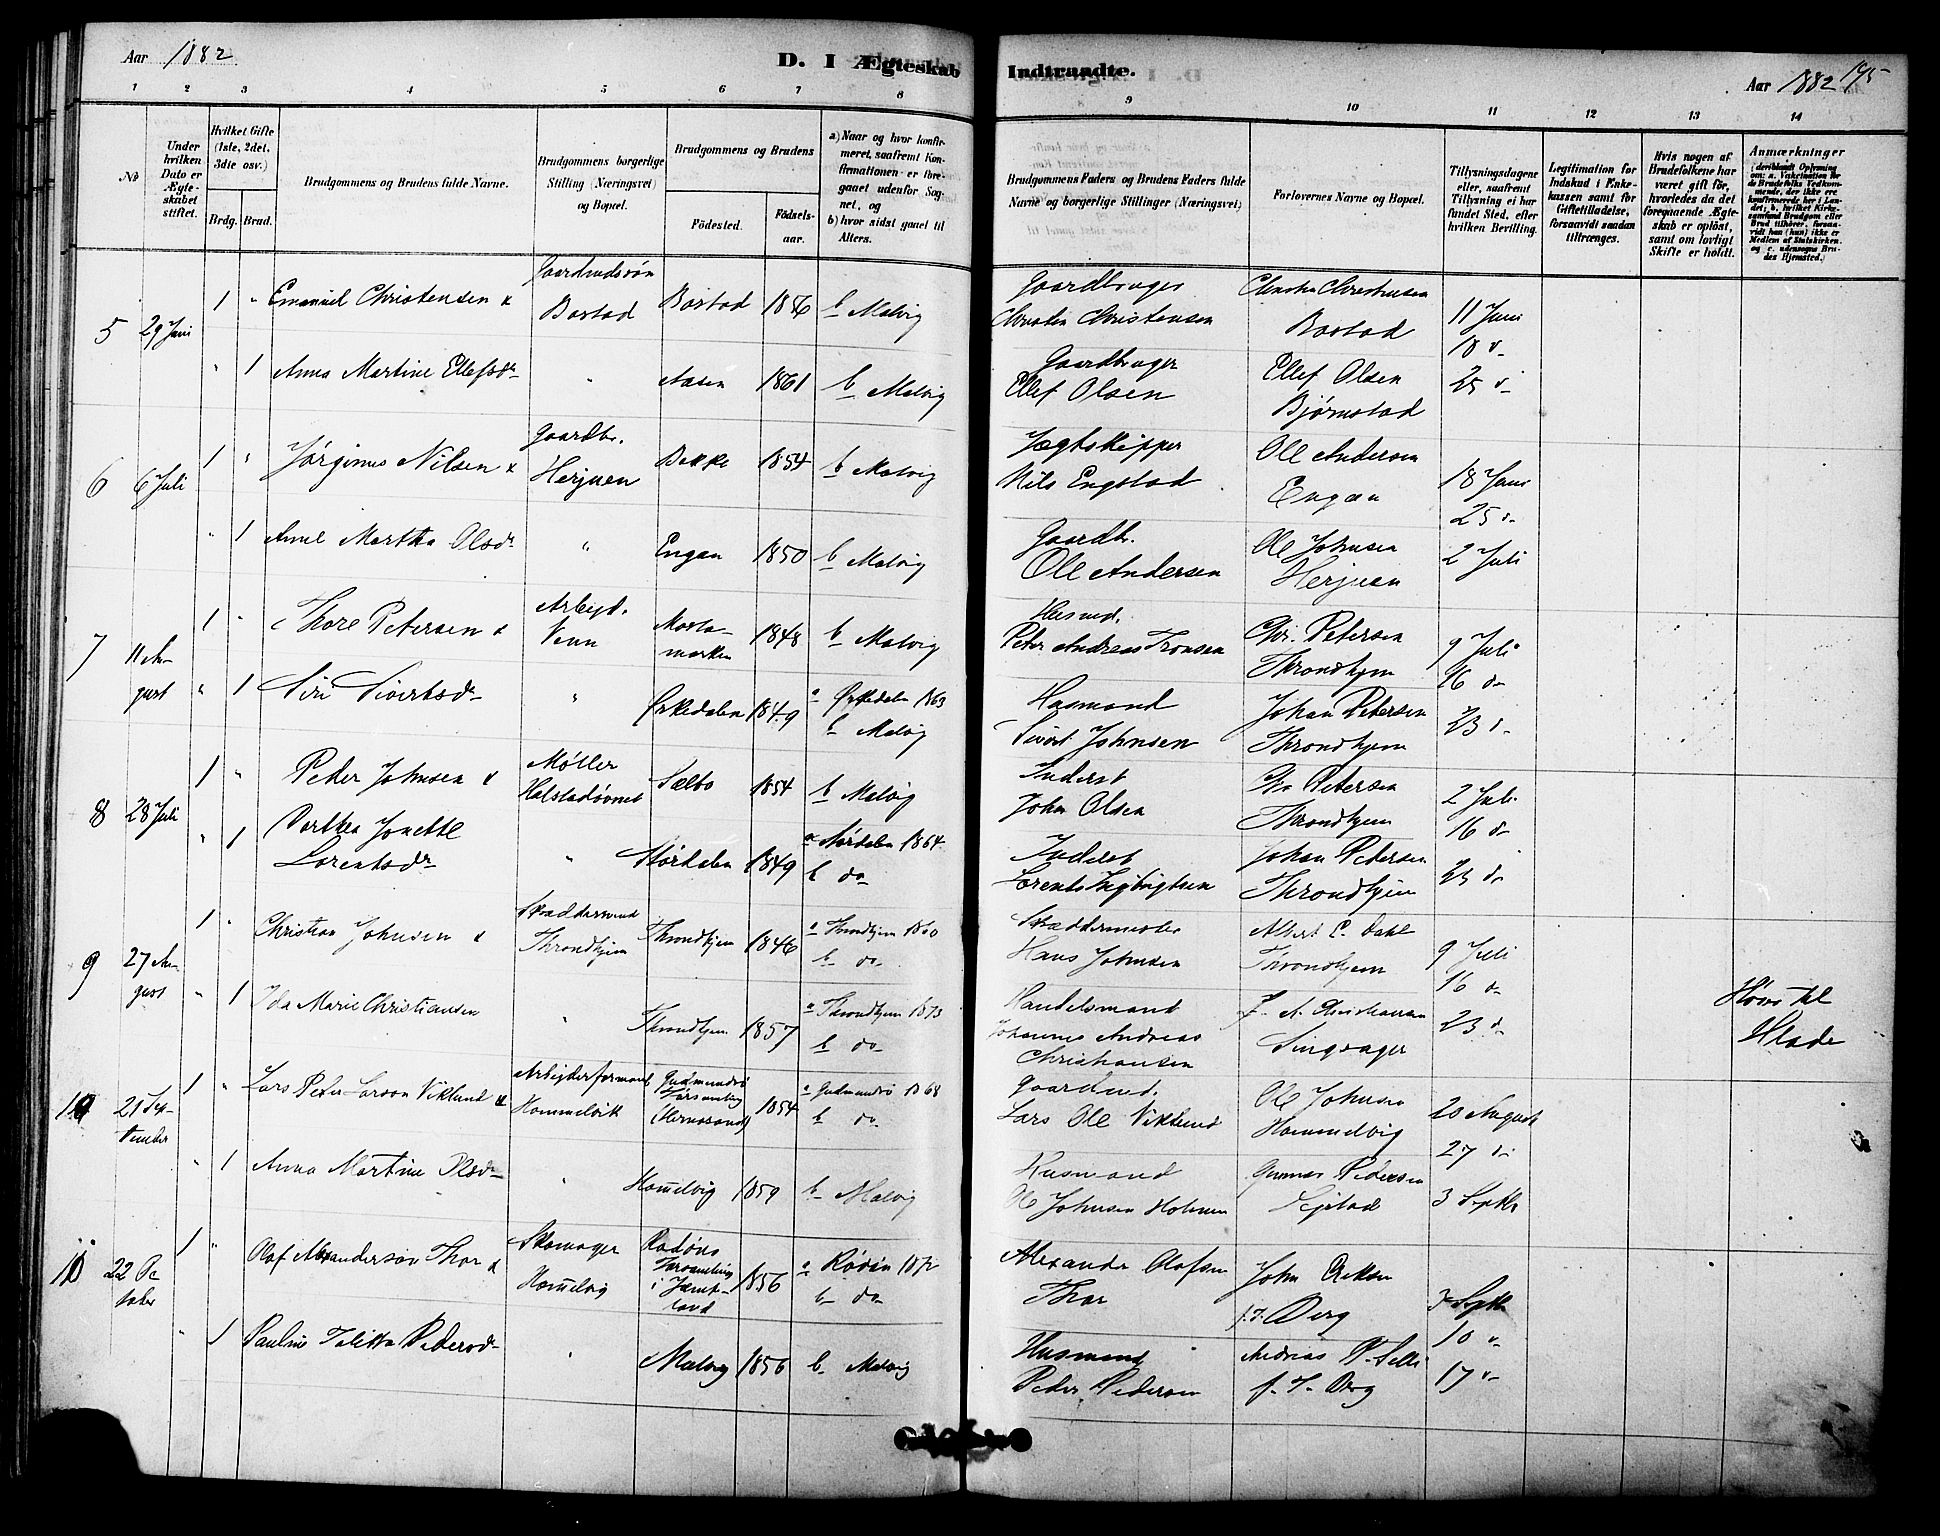 Aar 1882
D. I Ægteskab Indtraadte.
Aar 1882 175
1 2 3 4 5 6 7 8 9 10 11 12 13 14
No
Under hvilken Dato er Ægteskabet stiftet.
Hvilket Gifte (1ste, 2det, 3die osv.)
Brdg. Brud.
Brudgommens og Brudens fulde Navne.
Brudgommens borgerlige Stilling (Næringsvei) og Bopæl.
Brudgommens og Brudens
Födested. Födselsaar.
a) Naar og hvor konfirmeret, saafremt Konfirmationen er foregaaet udenfor Sognet, og
b) hvor sidst gaaet til Alters.
Brudgommens Faders og Brudens Faders fulde Navne og borgerlige Stillinger (Næringsvei)
Forlovernes Navne og Bopæl.
Tillysningsdagene eller, saafremt Tillysning ei har fundet Sted, efter hvilken Bevilling.
Legitimation for Indskud i Enkekassen samt for Giftetilladelse, forsaavidt saadan tiltrænges.
Hvis nogen af Brudefolkene har været gift för, hvorledes da det foregaaende Ægteskab er oplöst, samt om lovligt Skifte er holdt.
Anmærkninger
5 29 Juni 1 " Emanuel Christensen & Bostad Bostad 1856 b Malvig
Gaardbruger Christen Christensen Bostad 11 Juni
18 d-
" 1 Anna Martine Ellefsdr " Aasen 1861 b Malvig
Gaardbruger Ellef Olsen Ellef Olsen Bjørnstad 25 d-
6 6 Juli 1 " Jørginus Nilsen & Gaardbr. Herjuen Bakke 1854 b Malvig
Jægtskipper Nils Engstad Ole Andersen Engan 18 Juni
25 d-
" 1 Anne Martha Olsdr " Engan 1850 b Malvig
Gaardbr. Ole Andersen Ole Johnsen Herjuen 2 Juli
7 11 August 1 " Thore Petersen & Arbeid. Venn 1848 b Malvig
Husmd. Peter Andreas Tronsen Chr. Petersen Throndhjem 9 Juli
16 d-
" 1 Siri Sivertsdr " Ørkedalen 1849 a Ørkedalen 1863
b Malvig
Husmand Sivert Johnsen Johan Petersen Throndhjem 23 d-
8 28 Juli 1 " Peder Johnsen & Møller Halstadøvnet Sælbo 1854 b Malvig
Inderst John Olsen Chr Petersen Throndhjem 2 Juli
16 d-
" 1 Jonette Lorentsdr " Størdalen 1849 a Størdalen 1864
b do-
Inderst Johan Petersen Throndhjem 23 d-
9 27 August 1 " Christian Johnsen & Skræddersvend Throndhjem Throndhjem 1846 a Throndhjem 1860
b do-
Skræddermester Hans Johnsen Albert C. Dahl Throndhjem 9 Juli
16 d-
" 1 Ida Marie Christiansen " Throndhjem 1857 a Throndhjem 1873
b do-
Handelsmand Johannes Andreas Christiansen J. A. Christiansen Singsager 23 d-
Hører til Hlade
10 21 September 1 " Lars Peder Larson Viklund & Arbejderformand Hommelvik Gudmundrö Församling (Hernösand) 1854 a Gudmundrö 1868
b do-
Gaardmd. Lars Ole Viklund Ole Johnsen Hommelvig 20 August
27 d-
" 1 Anna Martine Olsdr " Homelvig 1859 b Malvig
Husmand Ole Johnsen Holmen Gunnar Pedersen 3 Septbr
11 22 October 1 " Olaf Alexandersøn Thor & Skomager Homelvig Församling i Jemtland 1856 a Rødön
b do-
Alexander Olofsen Thor John Eriksen f. T. Berg 3 Septbr
10 "
" 1 Pauline Talitta Pedersdr " Malvig 1856 b Malvig
Husmand Peder Pedersen Andreas P. f. T. Berg 17 "